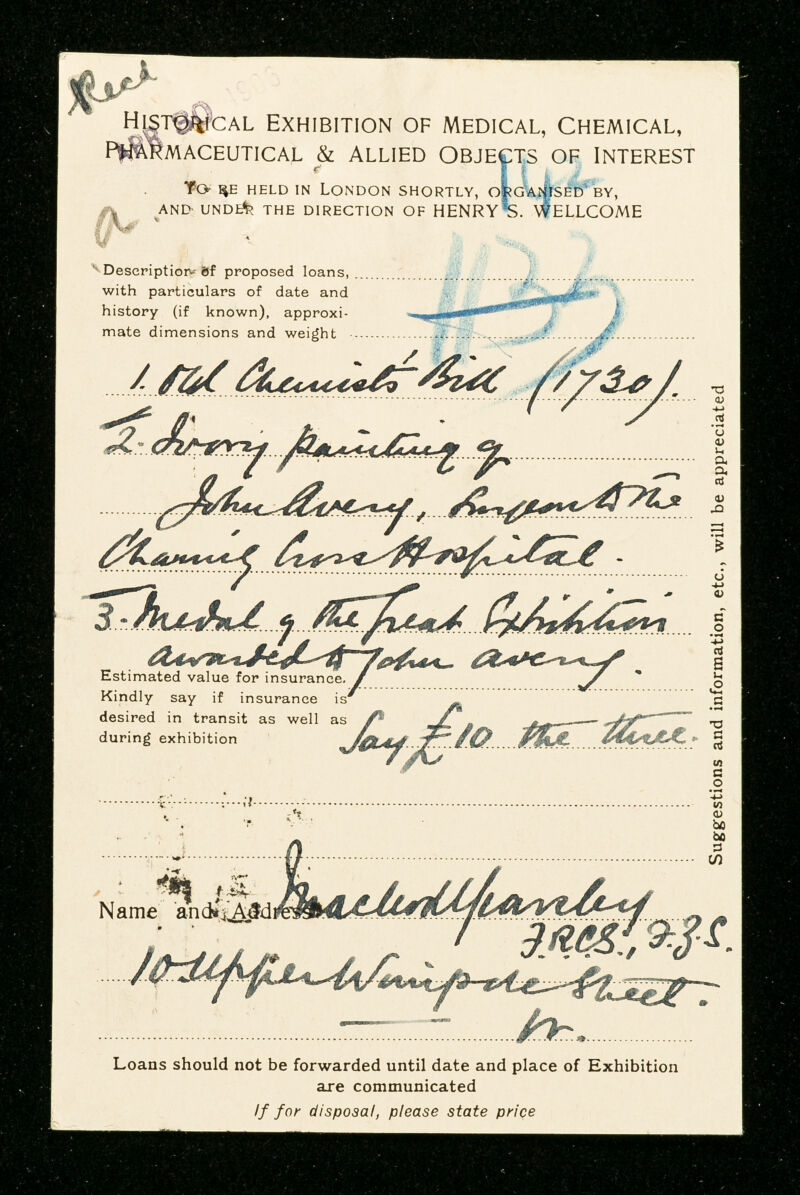 Recd
APR 30 1906
HISTORICAL EXHIBITION OF MEDICAL, CHEMICAL,
PHARMACEUTICAL & ALLIED OBJECTS OF INTEREST
TO BE HELD IN LONDON SHORTLY, ORGANISED BY,
AND UNDER THE DIRECTION OF HENRY S. WELLCOME
a
Description of proposed loans,
with particulars of date and
history (if known), approxi-
mate dimensions and weight
1133
1. Old Chemist's Bill (1730).
2. Ivory painting of
John Avery, Surgeon to the
Charing Cross Hospital.
3. Medal of the Great Exhibition
awarded to John Avery.
Estimated value for insurance.
Kindly say if insurance is
desired in transit as well as
during exhibition
Say £10 the three.
Suggestions and information, etc., will be appreciated
Name and Address
Macleod Yearsley
F.R.C.S., F.Z.S.
10 Upper Wimpole Street.
W.
Loans should not be forwarded until date and place of Exhibition
are communicated
If for disposal, please state price